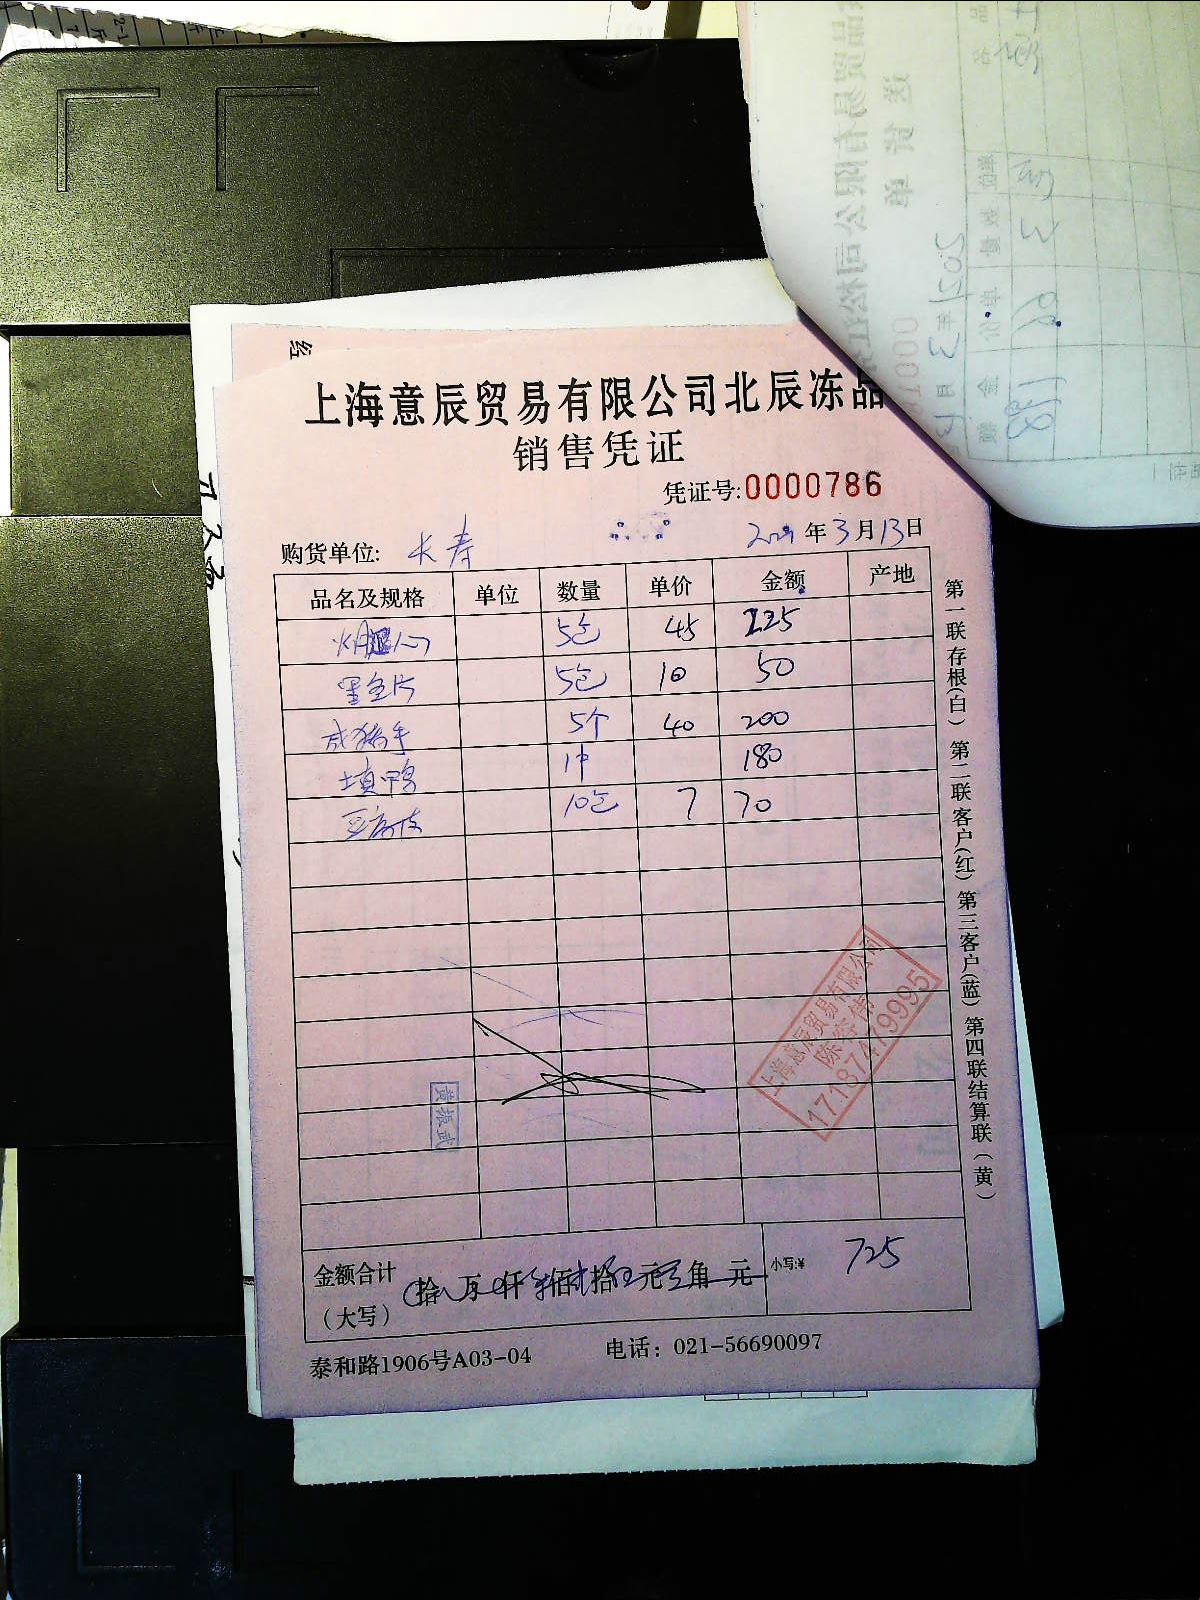 上海意辰贸易有限公司北辰冻品
销售凭证
凭证号:0000786
购货单位: 长寿 2021年3月13日
品名及规格 单位 数量 单价 金额 产地
5包 45 225
墨鱼片 5包 10 50
咸猪手 5个 40 200
填鸭 1件 180
豆腐皮 10包 7 70
上海意辰贸易有限公司
17187479995
黄振武
金额合计 拾 万 仟 佰 拾 元 角 元 小写:¥ 725
（大写）
泰和路1906号A03-04 电话：021-56690097
第一联存根(白) 第二联客户(红) 第三客户(蓝) 第四联结算联(黄)